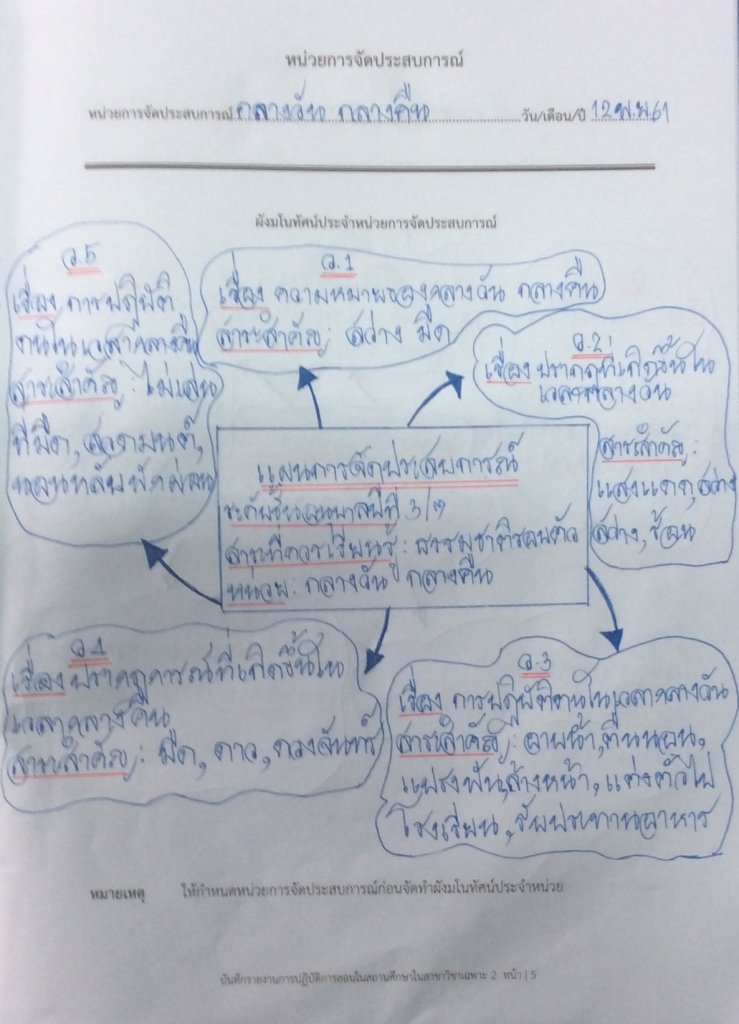 หน่วยการจัดประสบการณ์
หน่วยการจัดประสบการณ์ กลางวัน กลางคืน วัน/เดือน/ปี 12 พ.ย. 61
ผังมโนทัศน์ประจำหน่วยการจัดประสบการณ์
จ.1
เรื่อง ความหมายของกลางวัน กลางคืน
สาระสำคัญ: สว่าง มืด
อ.2
เรื่อง ปรากฎที่เกิดขึ้นใน
เวลากลางวัน
สาระสำคัญ:
แสงแดด, สว่าง
สว่าง, ร้อน
แผนการจัดประสบการณ์
ระดับชั้นอนุบาลปีที่ 3/๓
สาระที่ควรเรียนรู้: ธรรมชาติรอบตัว
หน่วย: กลางวัน กลางคืน
พ.3
เรื่อง การปฏิบัติตนในเวลากลางวัน
สาระสำคัญ: อาบน้ำ, ตื่นนอน,
แปรงฟัน, ล้างหน้า, แต่งตัวไป
โรงเรียน, รับประทานอาหาร
พฤ.4
เรื่อง ปรากฎการณ์ที่เกิดขึ้นใน
เวลากลางคืน
สาระสำคัญ: มืด, ดาว, ดวงจันทร์
ศ.5
เรื่อง การปฏิบัติ
ตนในเวลากลางคืน
สาระสำคัญ: ไม่เล่น
ที่มืด, สวดมนต์,
นอนหลับพักผ่อน
หมายเหตุ ให้กำหนดหน่วยการจัดประสบการณ์ก่อนจัดทำผังมโนทัศน์ประจำหน่วย
บันทึกรายงานการปฏิบัติการสอนในสถานศึกษาในสาขาวิชาเฉพาะ 2 หน้า | 5